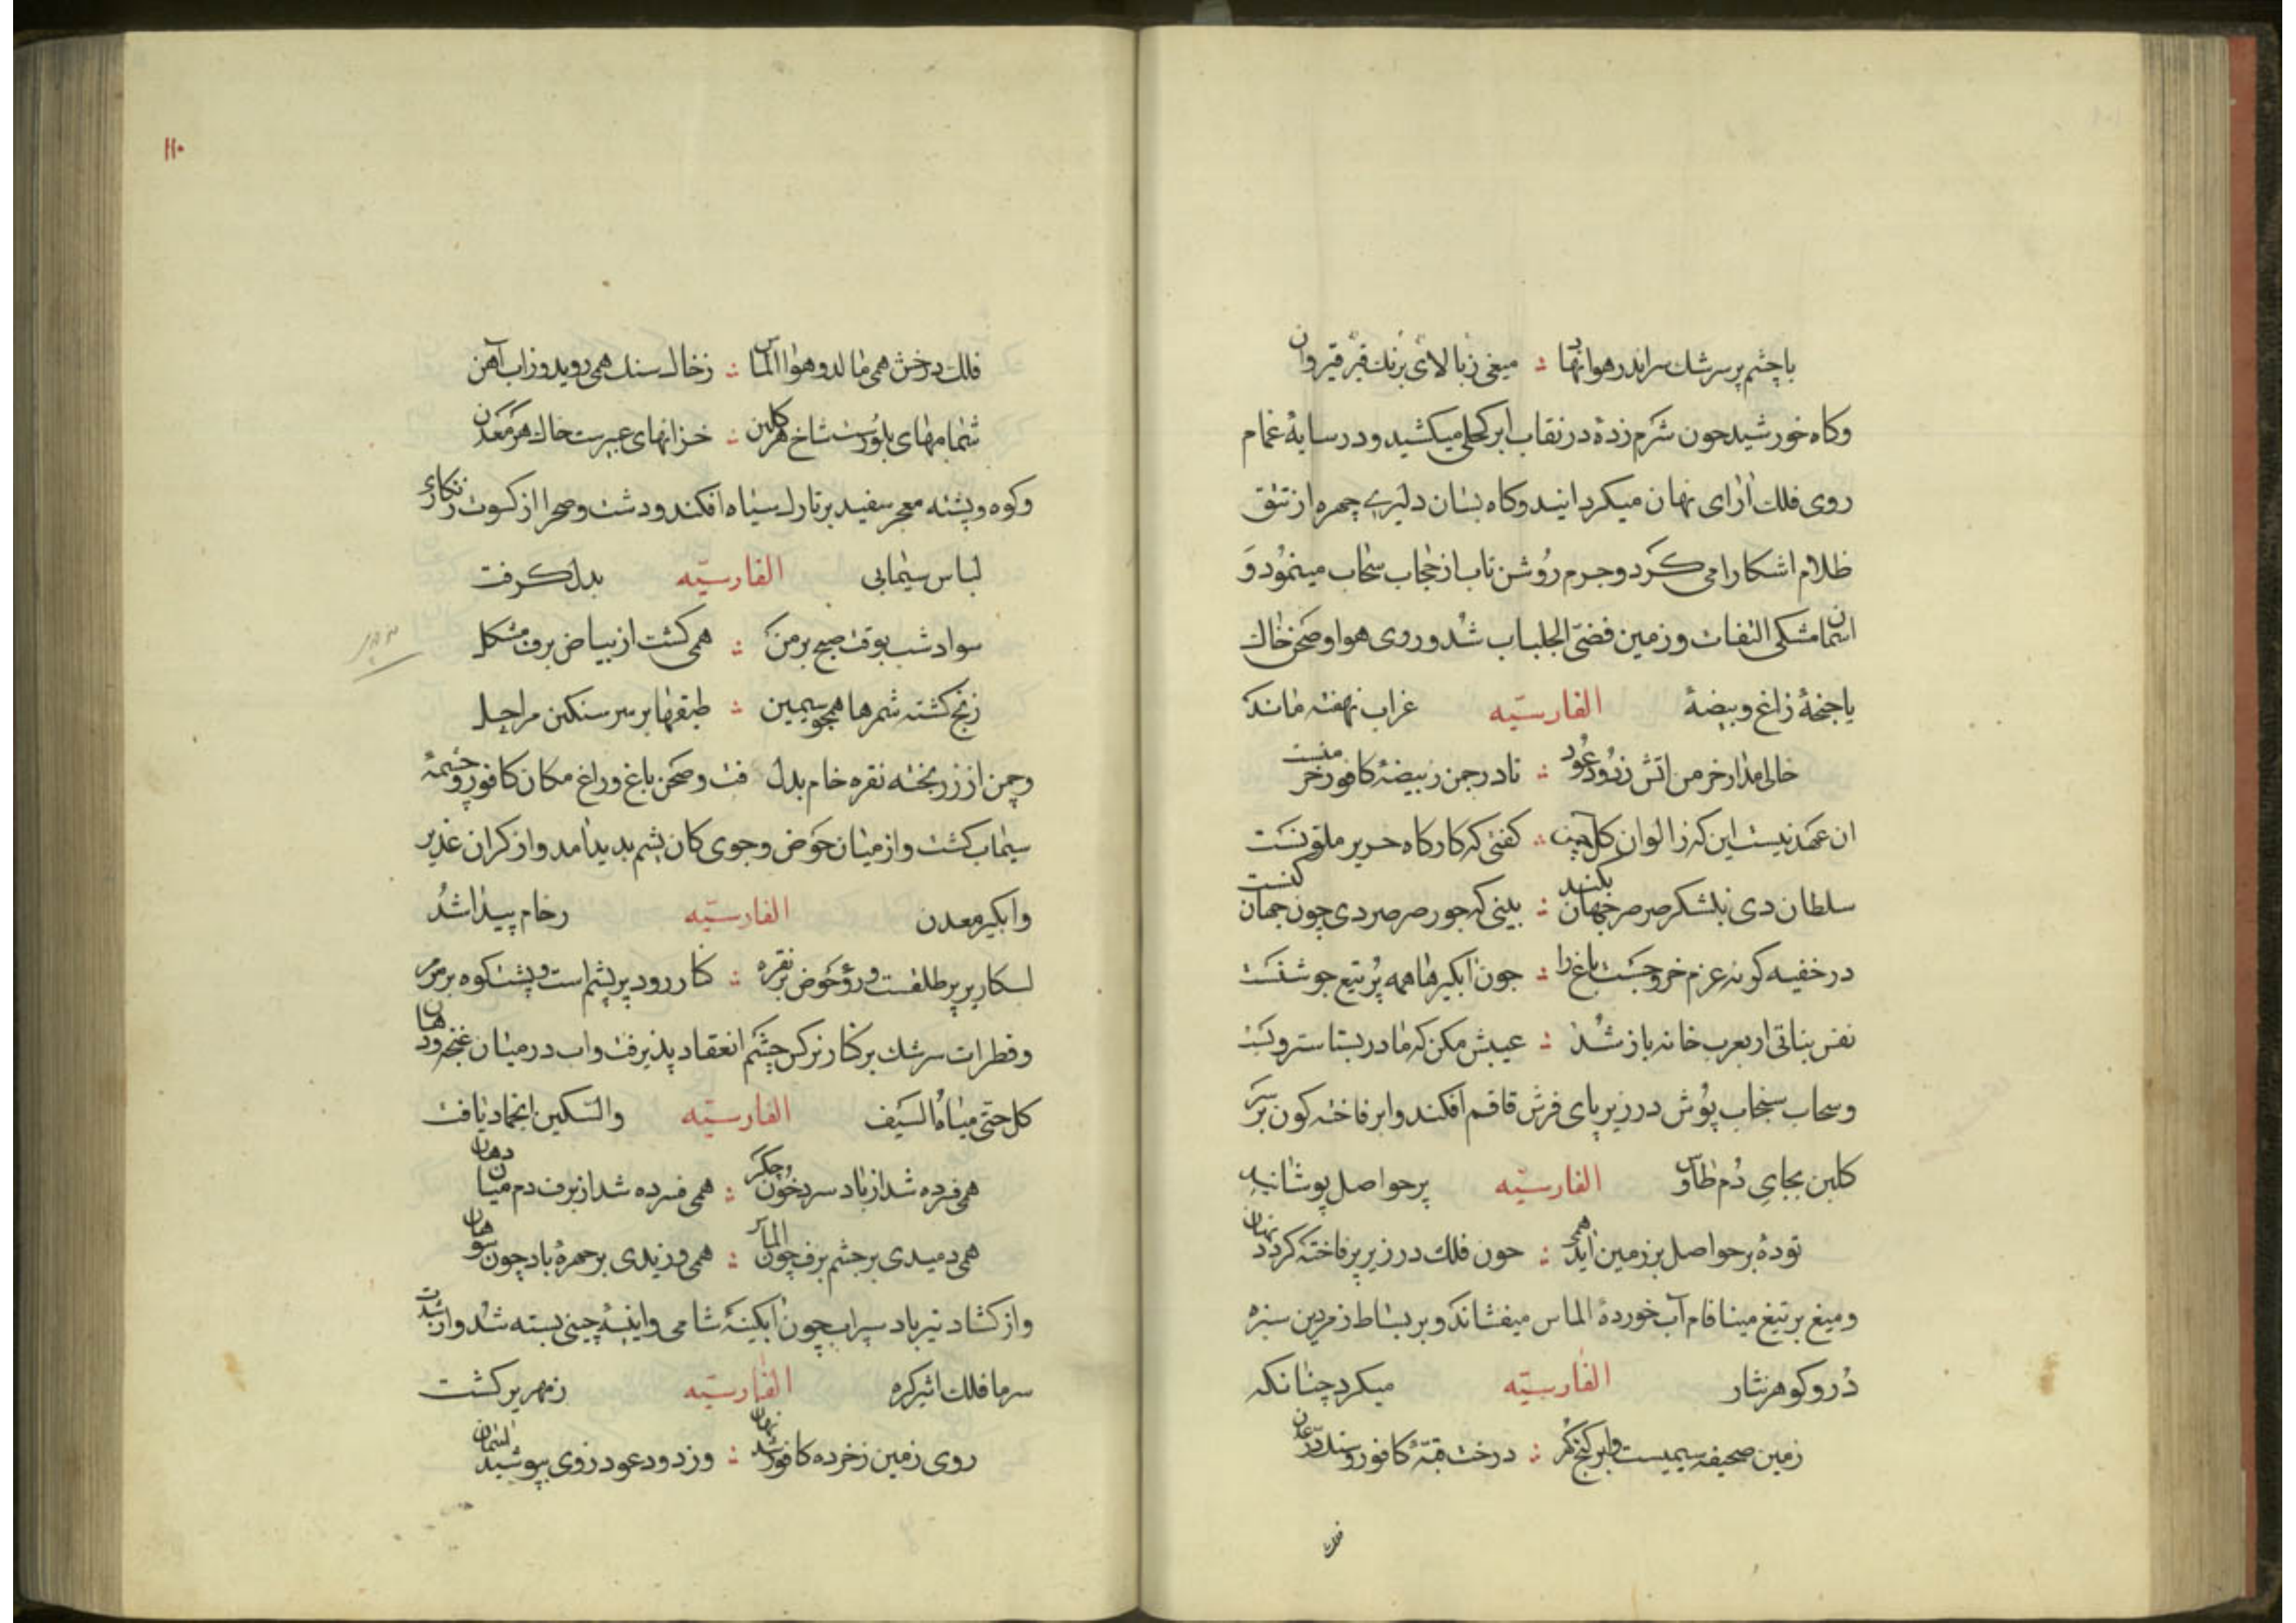 باچشم پر سرشک سر اندر هوا نهاد ؞ میغی ز بالای برنک قیر قیروان
وکاه خورشید جون شرم زده در نقاب ابر کحلی میکشید ودر سایهٔ غمام
روی فلک ارای نهان میکردانید وکاه بسان دلبری چهره از تتق
ظلام اشکارا می کرد وجرم روشن تاب از حجاب سحاب مینمود و
اسمان مشکی النقاب وزمین فضی الجلباب شد وروی هوا وصحن خاک
یا جنحهٔ زاغ وبیضهٔ الفارسیّه غراب نهفته ماند که
خالی مدار خرمن اتش ز دود عود ؞ تا در جمن ز بیضهٔ کافور خرمنست
ان عهد نیست این که ز الوان کل جمن ؞ کفتی که کارکاه حریر ملونست
سلطان دی بلشکر صرصر جهان بکند ؞ بینی که جور صرصر دی چون جهان کنست
در خفیه کونه عزم خروجست باغ را ؞ جون ابکیرها همه پر تیغ جوشنست
نفس بناتی ار بعرب خانه باز شد ؞ عیبش مکن که مادر بستان سترونست
وسحاب سنجاب پوش در زیر پای فرش قاقم افکند وابر فاخته کون بر سر
کلبن بجای دم طاوس الفارسیّه پر حواصل پوشانید
تودهٔ بر حواصل بر زمین اید همی ؞ جون فلک در زیر پر فاخته کردد نهان
ومیغ بر تیغ مینا فام آب خوردهٔ الماس میفشاند و بر بساط زمردین سبزه
در وکوهر نثار الفارسیّه میکرد چنانکه
زمین صحیفهٔ سیمیست وابر کنج کهر ؞ درخت قبّهٔ کافور
فلک
۱۱۰
فلک درخش همی مالد و هوا الماس ؞ ز خاک سنک همی روید وز اب آهن
شمامهای بلورست شاخ هر کلبن ؞ خزانهای عبیرست خاک هر معدن
وکوه وپشته معجر سفید بر تارک سیاه افکند ودشت وصحرا از کسوت زنکاری
لباس سیمابی الفارسیّه بدل کرفت
سواد شب بوقت صبح بر من ؞ همی کشت از بیاض برف مشکل
ز یخ کشته شمرها همجو سیمین ؞ طبقها بر سر سنکین مراجل
وچمن از زر پخته نقره خام بدل فت وصحن باغ وراغ مکان کافور وچشمهٔ
سیماب کشت واز میان حوض وجوی کان یشم بدید امد واز کران غدیر
وابکیر معدن الفارسیّه رخام پیدا شد
پر طلقست وروی حوض پر نقره ؞ کنار رود پر یشم است وپشت کوه پر مرمر
وقطرات سرشک بر کنار نرکس چشم انعقاد پذیرفت واب در میان غنچه ودهان
کل حتّی میاه السیف الفارسیّه والسکین انجماد یافت
همی فسرده شد از باد سرد خون جکر ؞ همی فسرده شد از برف دم میان دهان
همی دمیدی بر جشم برف چون الماس ؞ همی وزیدی بر جهرهٔ باد چون سوهان
واز کشاد تیر باد سیراب چون ابکینهٔ شامی واینهٔ چینی بسته شد واز شدت
سرما فلک اثیر کره الفارسیّه زمهریر کشت
روی زمین ز خرده کافور شد نهان ؞ وز دود عود روی بپوشید اسمان